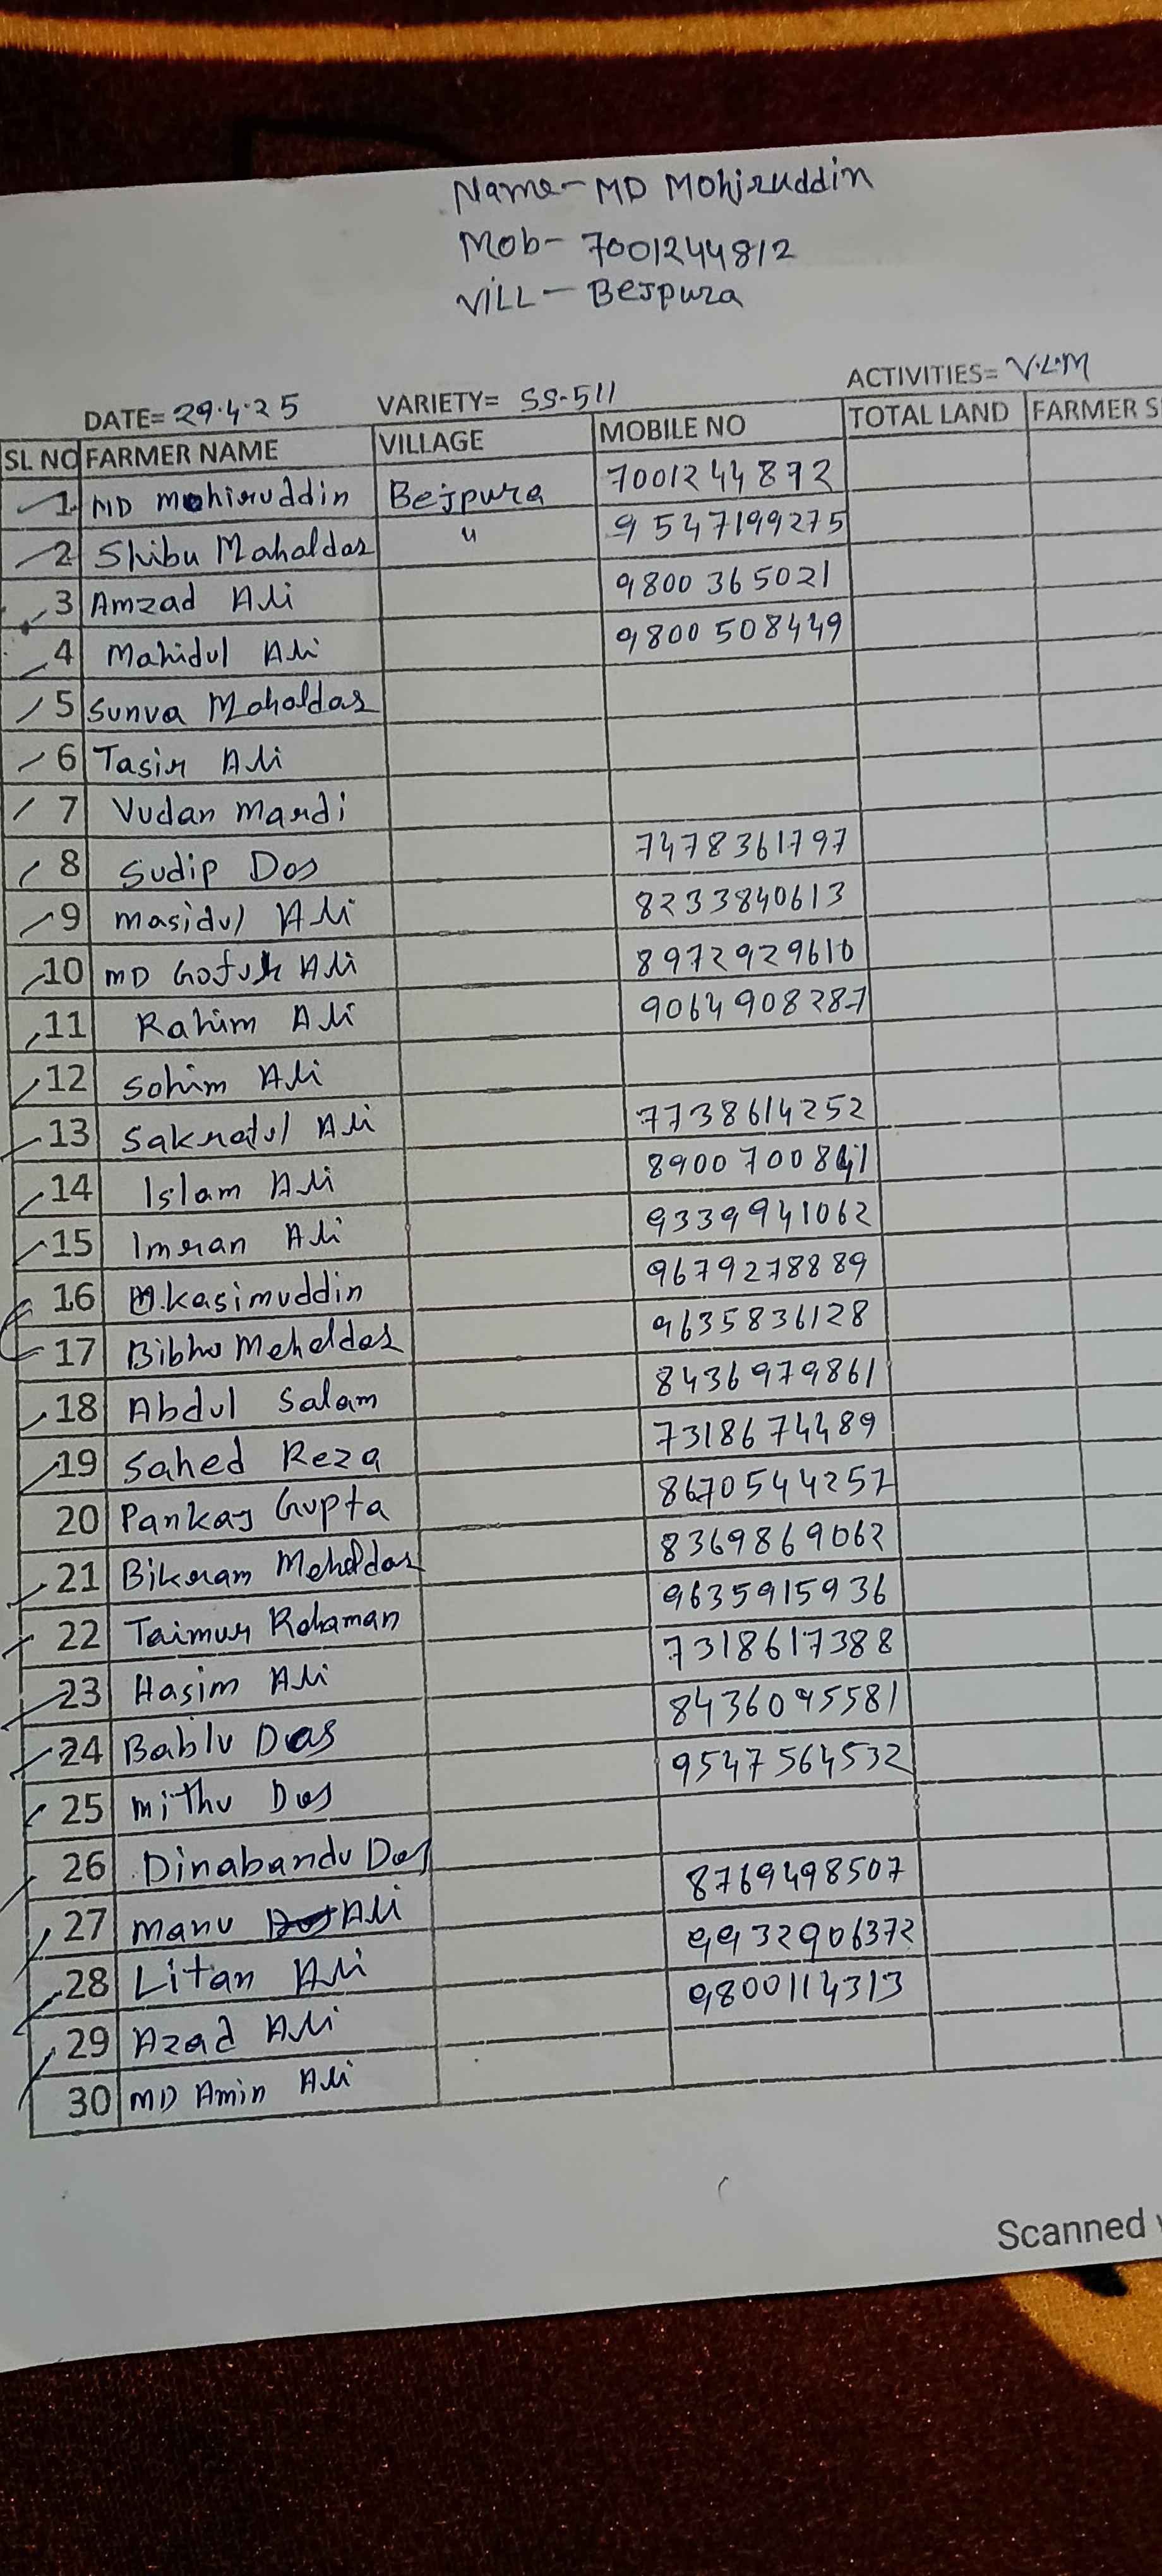 Name - MD Mohiruddin
Mob - 7001244812
VILL - Bejpura
DATE= 29.4.25 VARIETY= SS-511 ACTIVITIES= V.L.M
SL NO FARMER NAME VILLAGE MOBILE NO TOTAL LAND FARMER S
1 MD Mohiruddin Bejpura 7001244872
2 Shibu Mahaldar " 9547199275
3 Amzad Ali 9800365021
4 Mahidul Ali 9800508449
5 Sunva Mahaldar
6 Tasir Ali
7 Vudan Mardi
8 Sudip Das 7478361797
9 Masidul Ali 8233840613
10 MD Gofur Ali 8972929610
11 Rahim Ali 9064908287
12 Sohim Ali
13 Sakratul Ali 7738614252
14 Islam Ali 8900700841
15 Imran Ali 9339941062
16 M.kasimuddin 9679278889
17 Bibhu Mehaldar 9635836128
18 Abdul Salam 8436979861
19 Sahed Reza 7318674489
20 Pankaj Gupta 8670544257
21 Bikram Mehaldar 8369869062
22 Taimur Rahaman 9635915936
23 Hasim Ali 7318617388
24 Bablu Das 8436095581
25 Mithu Das 9547564532
26 Dinabandu Das
27 Manu Ali 8769498507
28 Litan Ali 9932906372
29 Azad Ali 9800114313
30 MD Amin Ali
Scanned